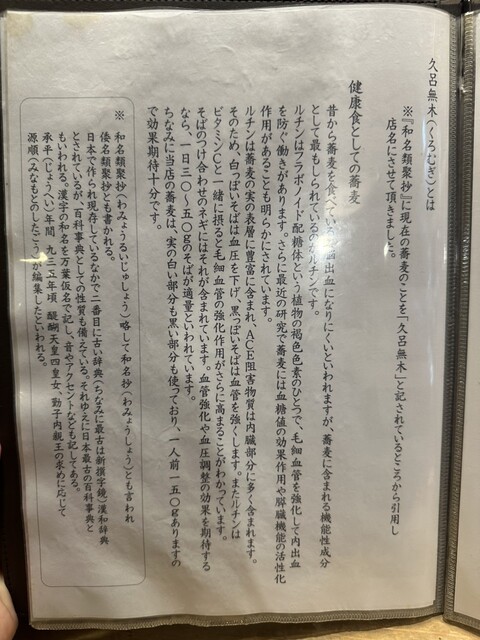 久呂無木（くろむぎ）とは
※『和名類聚抄』に現在の蕎麦のことを「久呂無木」と記されているところから引用し
店名にさせて頂きました。
健康食としての蕎麦
昔から蕎麦を食べている 脳出血になりにくいといわれますが、蕎麦に含まれる機能性成分
として最もしられているのがルチンです。
ルチンはフラボノイド配糖体という植物の褐色色素のひとつで、毛細血管を強化して内出血
を防ぐ働きがあります。さらに最近の研究で蕎麦には血糖値の効果作用や膵臓機能の活性化
作用があることも明らかにされています。
ルチンは蕎麦の実の表層に豊富に含まれ、ACE阻害物質は内臓部分に多く含まれます。
そのため、白っぽいそばは血圧を下げ、黒っぽいそばは血管を強くします。またルチンは
ビタミンCと一緒に摂ると毛細血管の強化作用がさらに高まることがわかっています。
そばのつけ合わせのネギにはそれが含まれています。血管強化や血圧調整の効果を期待する
なら、一日三〇〜五〇gのそばが適量といわれています。
ちなみに当店の蕎麦は、実の白い部分も黒い部分も使っており、一人前一五〇gありますの
で効果期待十分です。
※ 和名類聚抄（わみょうるいじゅしょう）略して和名抄（わみょうしょう）とも言われ
倭名類聚抄とも書かれる。
日本で作られ現存しているなかで二番目に古い辞典（ちなみに最古は新撰字鏡）漢和辞典
とされているが、百科事典としての性質も備えている。それゆえに日本最古の百科事典と
もいわれる。漢字の和名を万葉仮名で記し、音やアクセントなども記してある。
承平（じょうへい）年間 九三五年頃 醍醐天皇四皇女 勤子内親王の求めに応じて
源順（みなもとのしたごう）が編集したといわれる。